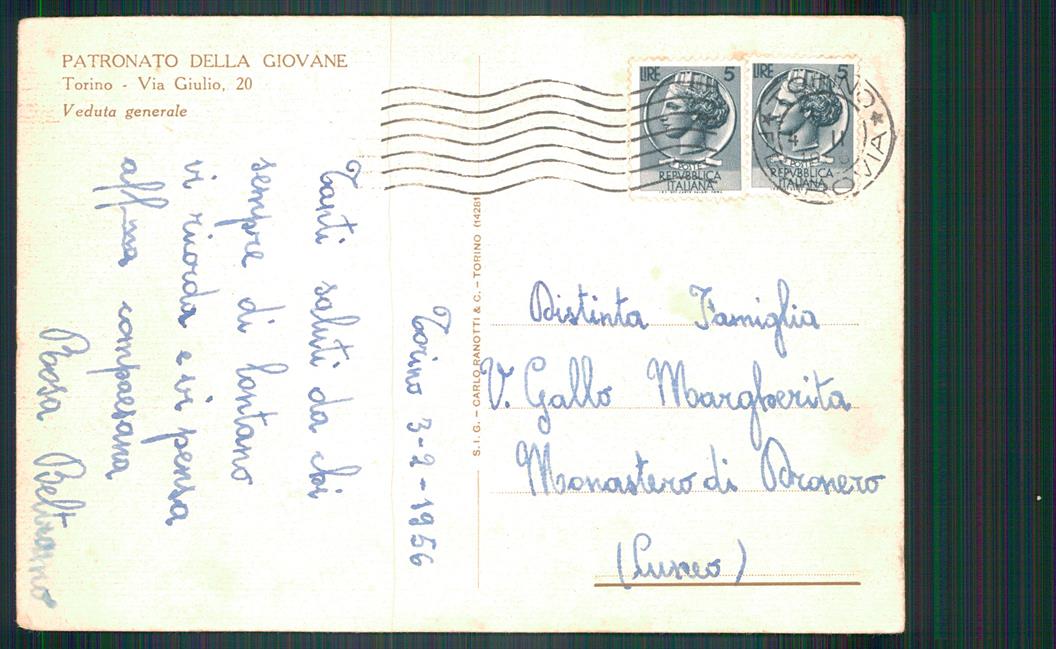 PATRONATO DELLA GIOVANE
Torino - Via Giulio, 20
Veduta generale
Torino 3-2-1956
Tanti saluti da chi
sempre di lontano
vi ricorda e vi pensa
aff-ma compaesana
Rosa Beltramo
S.I.G. - CARLO RANOTTI & C. - TORINO (14281
LIRE 5
POSTE
REPVBBLICA
ITALIANA
LIRE 5
POSTE
REPVBBLICA
ITALIANA
TORINO
FERROVIA
Distinta Famiglia
V. Gallo Margherita
Monastero di Dronero
(Cuneo)